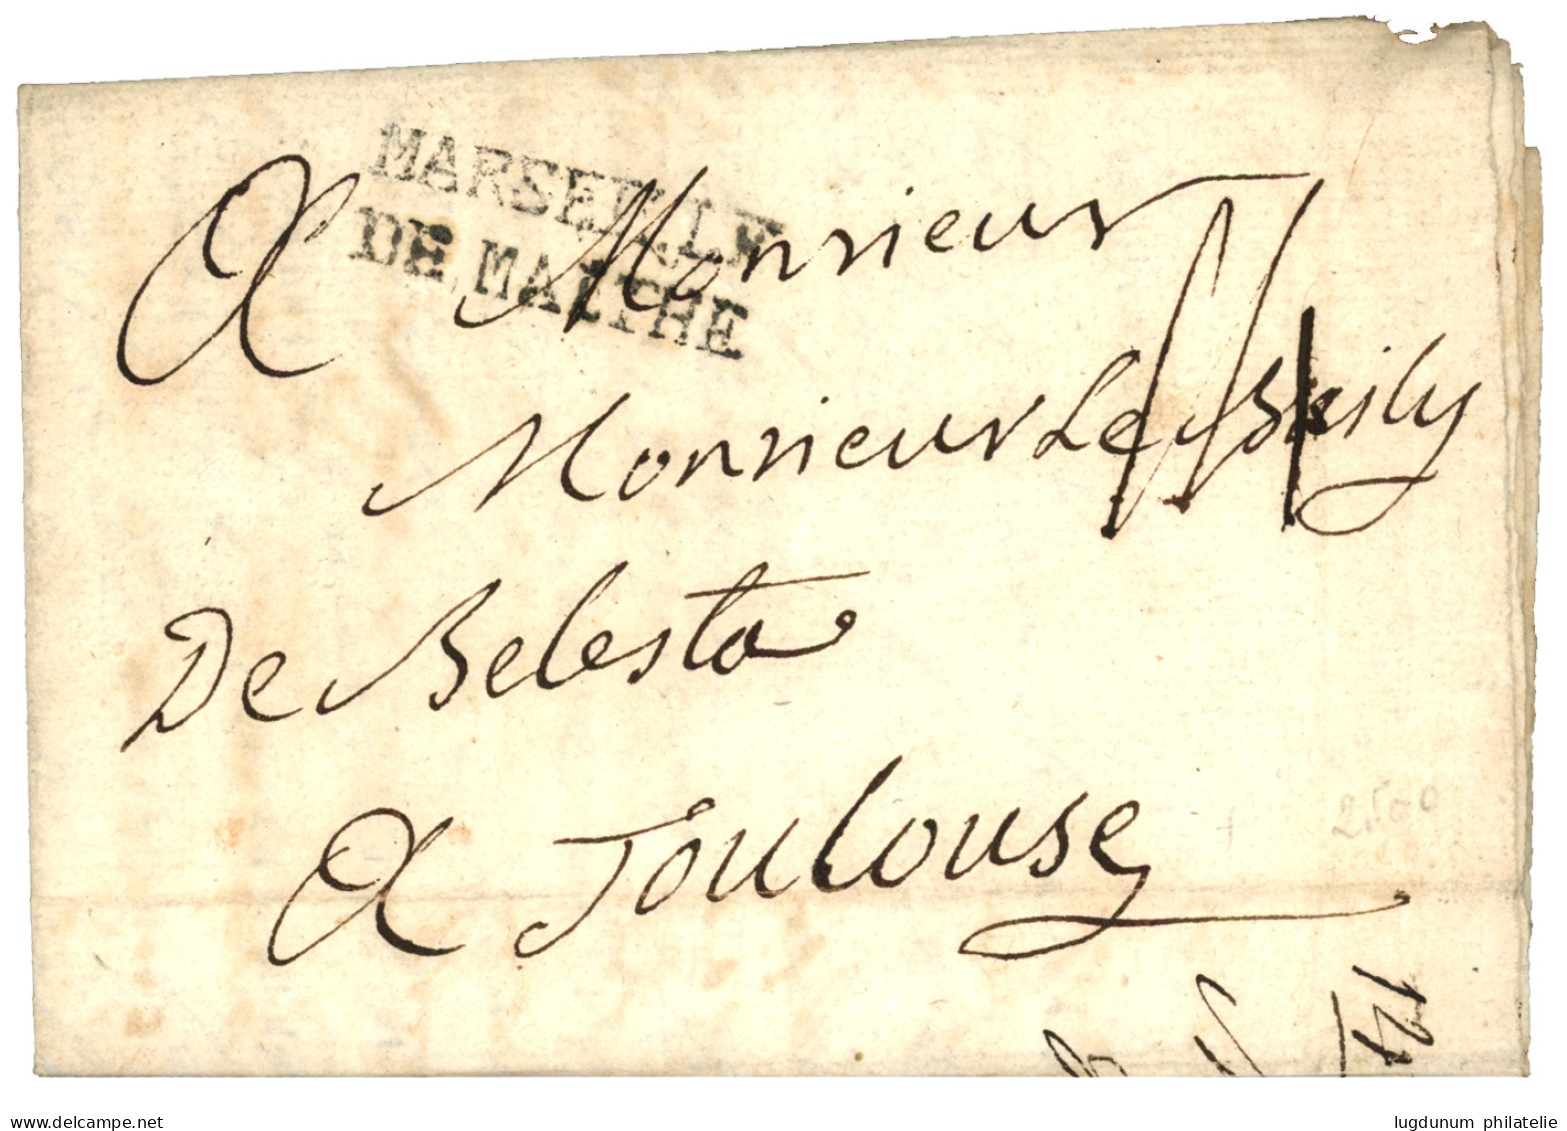 MARSEILLE
DE MALTHE
A Monsieur
Monsieur Le Baily
De Belesta
A Toulouse
2500
www.delcampe.net
lugdunum philatelie